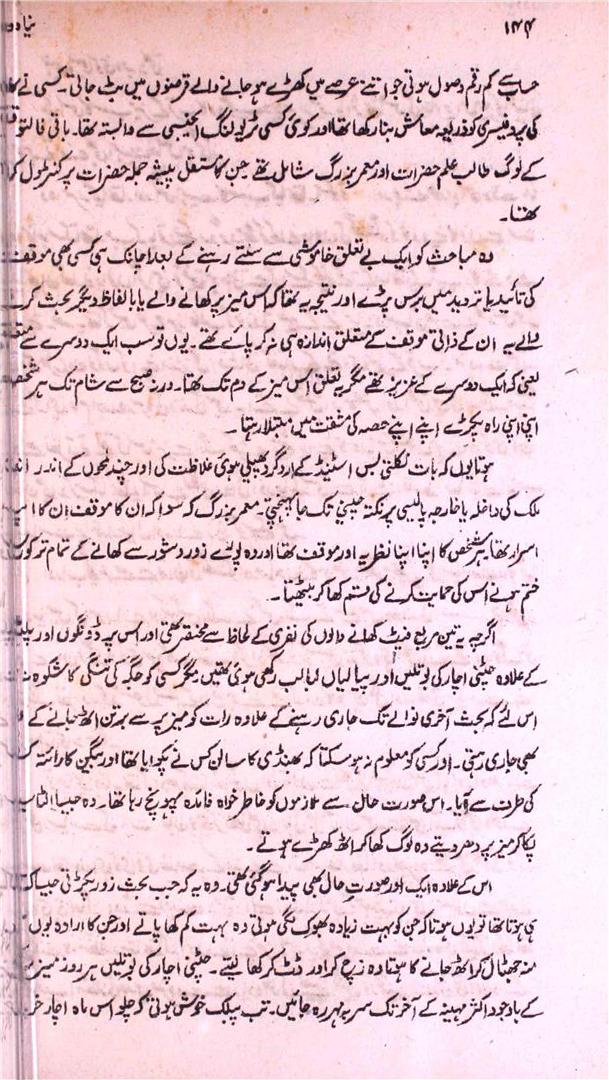 ۱۴۴ نیا دو
حساب سے کم رقم وصول ہوتی جو اتنے عرصے میں کھڑے ہو جانے والے قرضوں میں بٹ جاتی۔ کسی نے
کی پروفیسری کو ذریعہ معاش بنا رکھا تھا اور کوئی کسی ٹریولنگ ایجنسی سے وابستہ تھا۔ باقی فالتو
کے لوگ طالب علم حضرات اور معمر بزرگ شامل تھے جن کا مستقل پیشہ جملہ حضرات پر کنٹرول کر
تھا۔
وہ مباحث کو ایک بے تعلق خاموشی سے سنتے رہنے کے بعد اچانک ہی کسی بھی موقف
کی تائید یا تردید میں برس پڑتے اور نتیجہ یہ تھا کہ اس میز پر کھانے والے یا بالفاظ دیگر بحث کرنے
والے یہ ان کے ذاتی موقف کے متعلق اندازہ ہی نہ کر پائے تھے۔ یوں تو سب ایک دوسرے سے
یعنی کہ ایک دوسرے کے عزیز تھے مگر یہ تعلق اس میز کے دم تک تھا۔ ورنہ صبح سے شام تک ہر شخص
اپنی اپنی راہ پکڑے اپنے اپنے حصہ کی مشقت میں مبتلا رہتا۔
ہوتا یوں کہ بات نکلتی بس اسٹینڈ کے ارد گرد پھیلی ہوئی غلاظت کی اور چند لمحوں کے اندر
ملک کی داخلہ یا خارجہ پالیسی پر نکتہ چینی تک جا پہنچتی۔ معمر بزرگ کے سوا کہ ان کا موقف ان کا
اسرار تھا ہر شخص کا اپنا اپنا نظریہ اور موقف تھا اور وہ پورے زور و شور سے کھانے کے تمام تر کورس
ختم ہونے اس کی حمایت کرنے کی قسم کھا کر بیٹھتا۔
اگرچہ یہ تین مربع فیٹ کھانے والوں کی نفری کے لحاظ سے مختصر تھی اور اس پر ڈونگوں اور
کے علاوہ چٹنی اچار کی بوتلیں اور پیالیاں لبالب رکھی ہوئی تھیں۔ مگر کسی کو جگہ کی تنگی کا شکوہ نہ
اس لئے کہ بحث آخری نوالے تک جاری رہنے کے علاوہ رات کو میز پر سے برتن اٹھ جانے کے
بھی جاری رہتی۔ اور کسی کو معلوم نہ ہو سکتا کہ بھنڈی کا سالن کس نے پکوایا تھا اور بینگن کا رائتہ
کی طرف سے آیا۔ اس صورت حال سے ملازموں کو خاطر خواہ فائدہ پہونچ رہا تھا۔ وہ جیسا الٹا
پکا کر میز پر دھر دیتے وہ لوگ کھا کر اٹھ کھڑے ہوتے۔
اس کے علاوہ ایک اور صورت حال بھی پیدا ہو گئی تھی۔ وہ یہ کہ جب بحث زور پکڑتی جیسا کہ
ہی ہوتا تھا تو یوں ہوتا کہ جن کو بہت زیادہ بھوک لگی ہوتی وہ بہت کم کھا پاتے اور جن کا ارادہ یوں
منہ جھٹال کر اٹھ جانے کا ہوتا وہ زچ کر اور ڈٹ کر کھا لیتے۔ چٹنی اچار کی بوتلیں ہر روز میز پر
کے باوجود اکثر مہینہ کے آخر تک سر بہ مہر رہ جاتیں۔ تب پبلک خوش ہوتی کہ چلو اس ماہ اچار